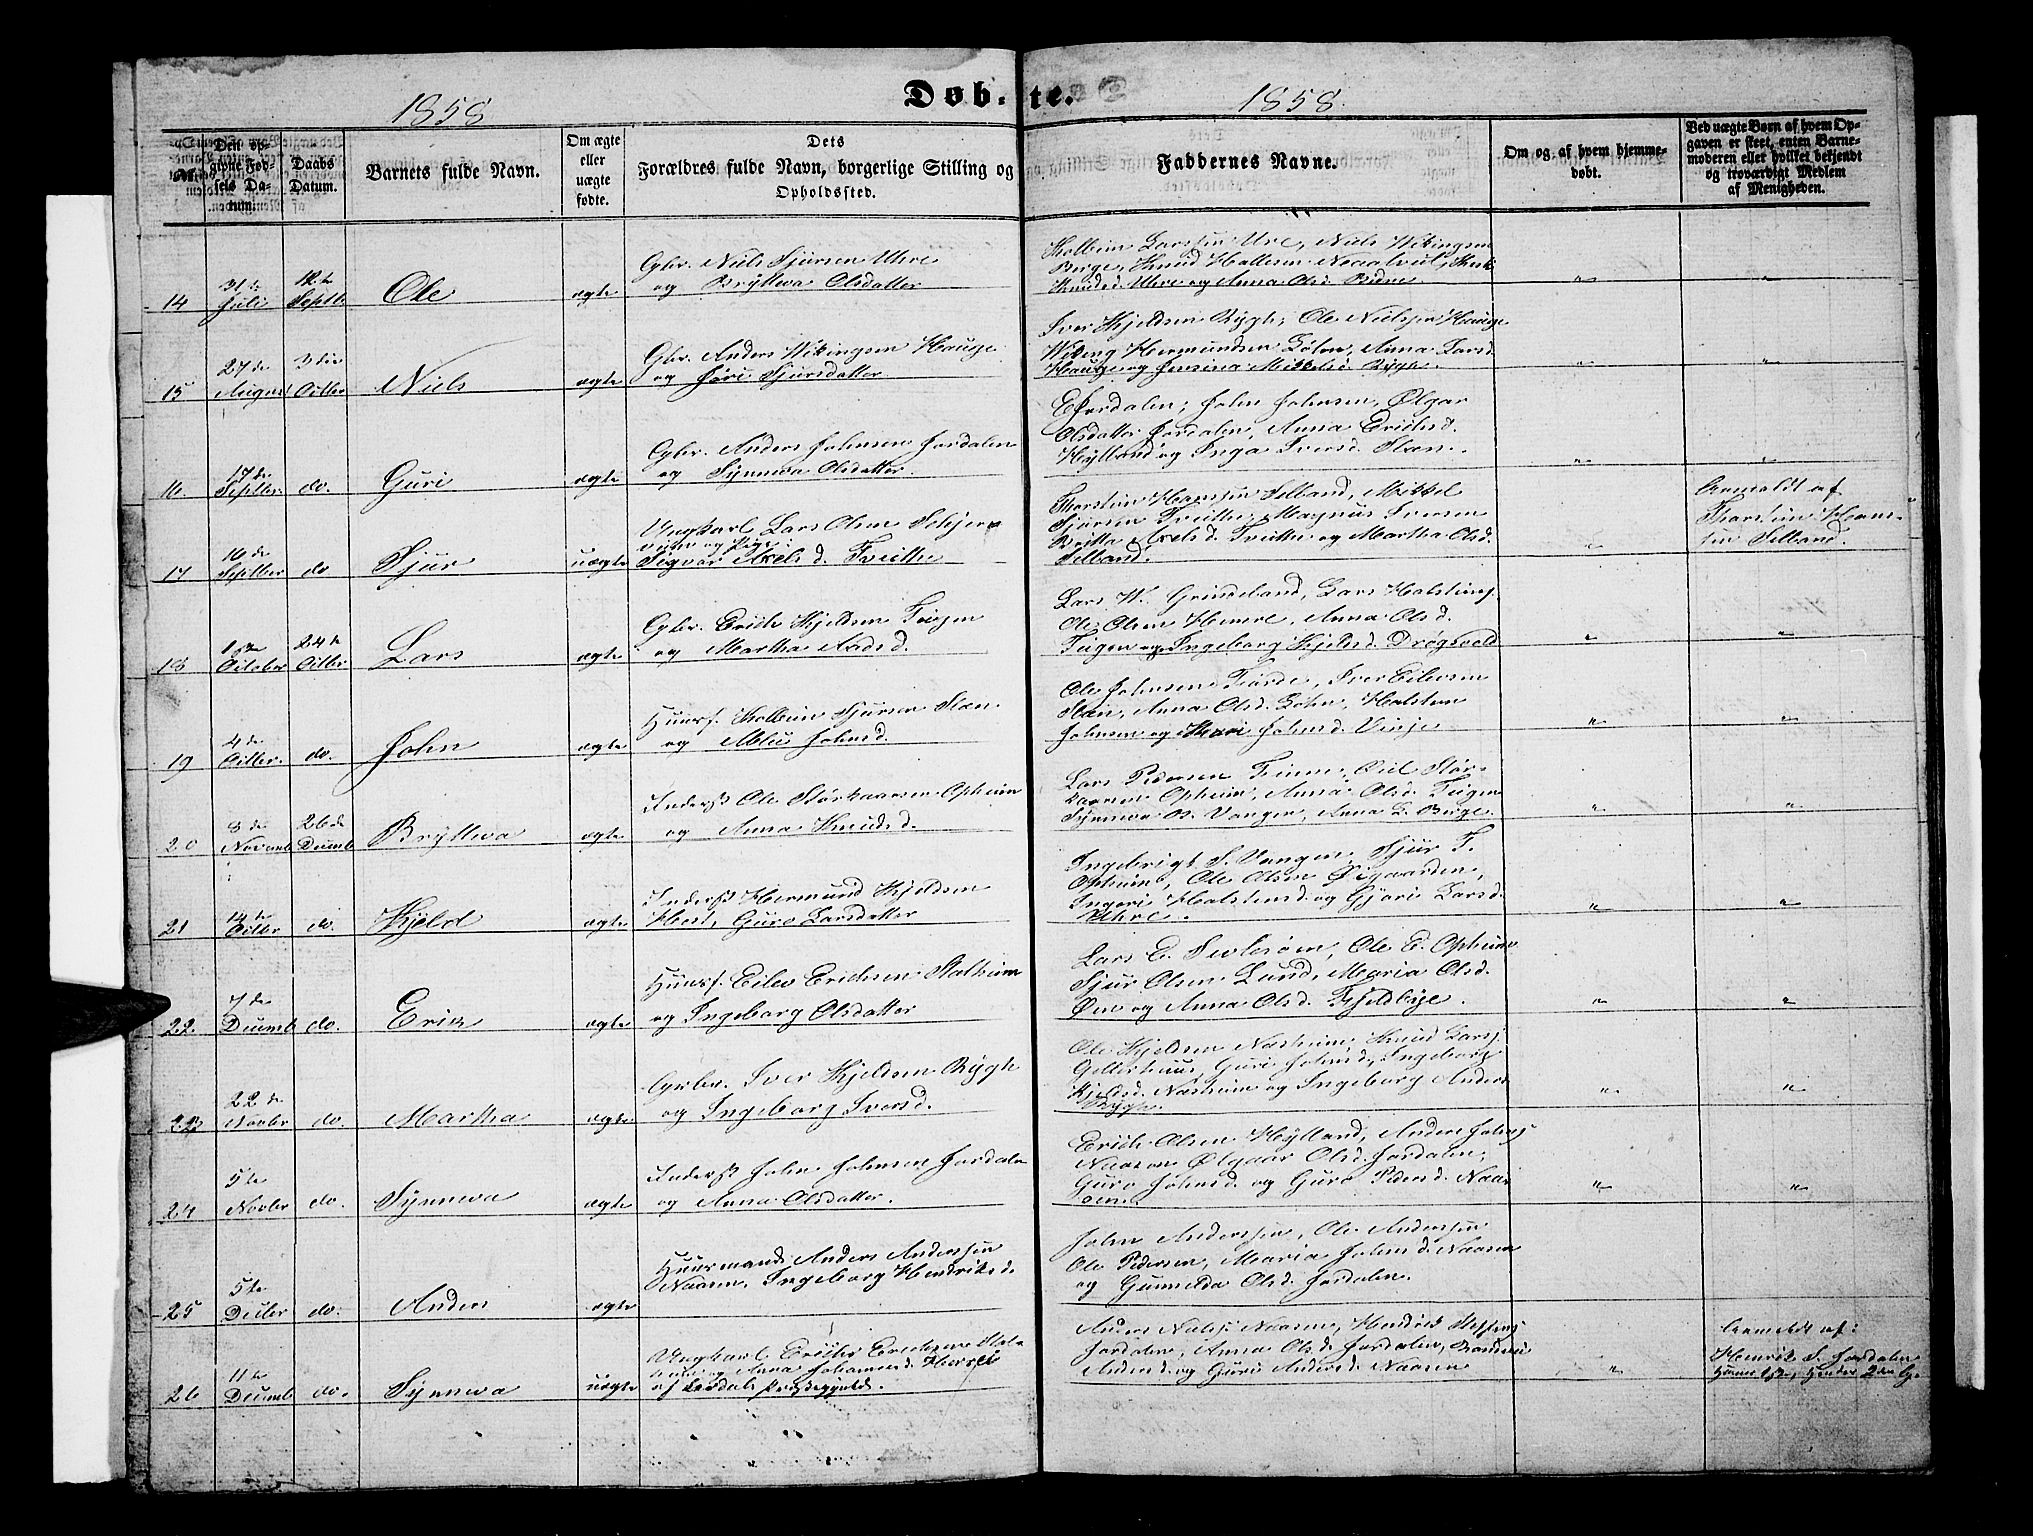 1858
Døb-
te.
1858.
№
Den op-
givne Fød-
sels Da-
tum.
Daabs
Datum.
Barnets fulde Navn.
Om ægte
eller
uægte
fødte.
Dets
Forældres fulde Navn, borgerlige Stilling og
Opholdssted.
Faddernes Navne.
Om og af hvem hjemme-
døbt.
Ved uægte Børn af hvem Op-
gaven er skeet, enten Barne-
moderen eller hvilket bekjendt
og troværdigt Medlem
af Menigheden.
14
31te
Juli
12te
Septbr
Ole
ægte
Gbr. Niels Sjursen Uhre
og Brytteva Olsdatter
Kolbein Larssen Ure, Niels Wikingsen
Berge, Knud Hallesen
Knudsd. Uhre og Anna Olsd.
"
"
15
27de
August
3die
Octbr
Niels
ægte
Gbr. Anders Wikingsen Hauge
og Jøri Sjursdatter
Iver Kjeldsen Rygh, Ole Nielsen Hauge
Wiking Hermundsen Løhn, Anna Larsd.
Hauge og Mikkelsd. Rygh.
"
"
16
17de
Septbr.
do.
Guri
ægte
Gbr. Anders Johnsen Jordalen
og Synneva Olsdatter.
E Jordalen, John Johnsen, Ølgar
Olsdatter Jordalen, Anna Erichsd.
Hylland og Inga Iversd. Slæn.
"
"
17
16de
Septber
do
Sjur
uægte
Ungkarl Lars Olsen
og Pige
Sigvor Axelsd. Tveithe
Thorstein Hanssen Selland, Mikkel
Sjursen Tveithe, Magnus Iversen
Britta Axelsd. Tveithe og Martha Olsd.
Selland.
"
Anmeldt af
Thorstein Hans-
sen Selland.
18
1ste
October
24de
Octbr
Lars
ægte
Gbr. Erich Kjeldsen Tvigen
og Martha Aadsd.
Lars W. Grindeland, Lars Halstens.
Ole Olsen Hemre, Anna Olsd.
Teigen og Ingeborg Kjeldsd. Drøgsvold
"
"
19
4de
Octbr.
do.
John
ægte
Huusf. Kolbein Sjursen Slæn
og Johnsd.
Ole Johnsen Tvinde, Iver Eilevsen
Slæn, Anna Olsd. Løhn, Halsten
Johnsen og Kari Johnsd. Vinje
"
"
20
8de
Novemb
26de
Decemb
Brytteva
ægte
Inderst Ole Størkaarsen Opheim
og Anna Knudsd.
Lars Pedersen Tvinne, Størkaarsen Opheim, Anna Olsd. Teigen
Synneva B. Vangen, Anna L. Berge.
"
"
21
14de
Octbr
do.
Kjeld
ægte
Inderst Hermund Kjeldsen
Guro Larsdatter
Ingebrigt S. Vangen, Sjur T.
Opheim, Ole Olsen Øigaarden,
Ingeri Halstensd. og Gjøri Larsd.
Uhre.
"
"
22
7de
Decemb
do.
Erik
ægte
Huusf. Eilev Erichsen Stalheim
og Ingeborg Olsdatter
Lars E. Ole E. Opheim
Sjur Olsen Lund, Maria Olsd.
Øen og Anna Olsd. Fjeldbye.
"
"
23
22de
Novbr
do
Martha
ægte
Gbr. Iver Kjeldsen Rygh
og Ingeborg Iversd.
Ole Kjeldsen Næsheim, Knud Larss.
Gilleshuus, Guri Johnsd., Ingeborg
Kjeldsd. Næsheim og Ingeborg Anders
Rygh.
"
"
24
5te
Novbr
do.
Synneva
ægte
Inderst John Johnsen Jordalen
og Anna Olsdatter.
Erich Olsen Hylland, Anders Johns.
Naaren Ølgaar Olsd. Jordalen,
Guro Johnsd. og Guro Pedersd. Naar
øen.
"
"
25
5te
Decbr
do.
Anders
ægte
Huusmand Anders Anderssen
Naaren, Ingeborg Hendriksd.
John Anderssen, Ole Anderssen
Ole Pedersen, Maria Johnsd. Naaren
og Gunnilda Olsd. Jordalen.
26
11te
Decemb
do.
Synneva
uægte
Ungkarl Erichs Erichsen Stal-
Anna Johannesd.
af Leirdals Præstegjeld.
Anders Nielss. Naaren, Hendrik Steffens.
Jordalen, Anna Olsd. Jordalen, Brandis
Andersd. og Guri Andersd. Naaren
"
Anmeldt af:
Henrik S. Jordalen
Hannes 1ste, Hendes 2den L.